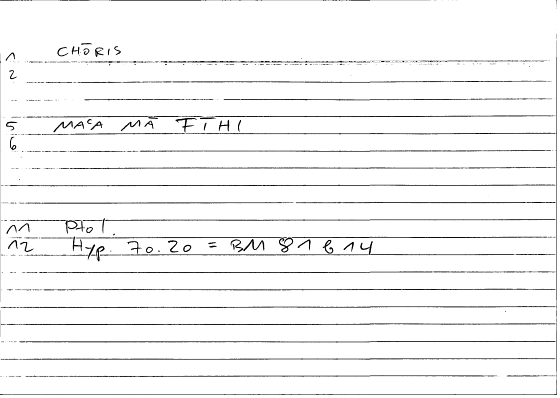 1 CHŌRIS
2
5 MAʿA MĀ FĪHI
6
11 Ptol.
12 Hyp. 70.20 = BM 81 b 14